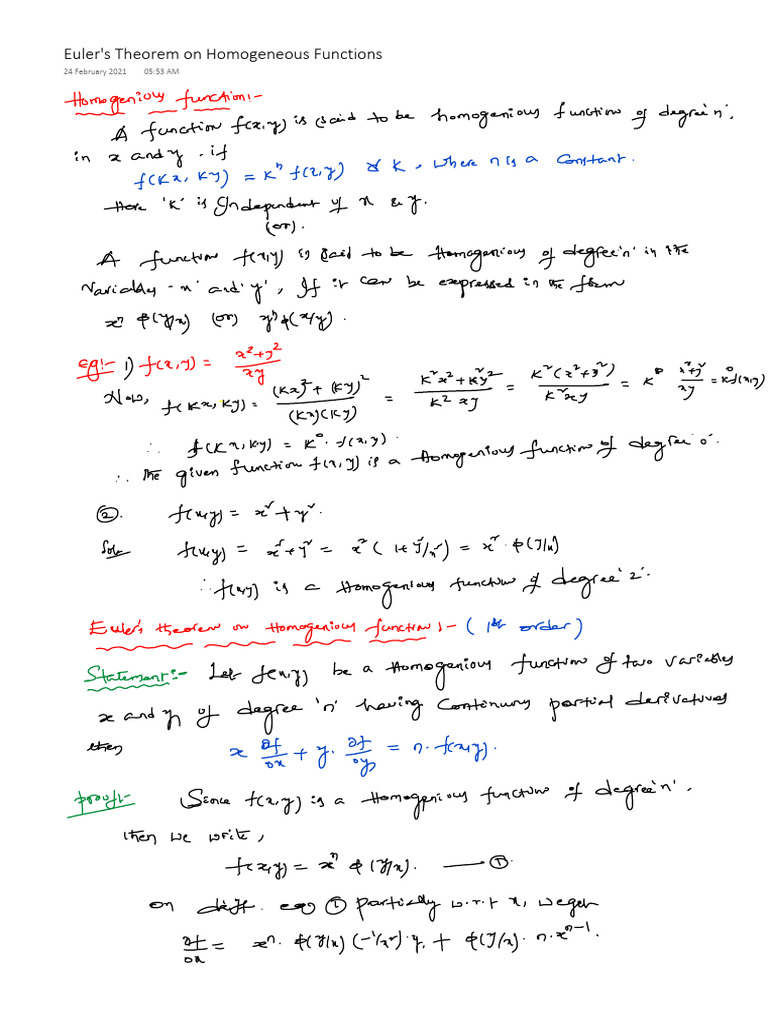 Euler's Theorem on Homogeneous Functions
24 February 2021 05:53 AM
Homogenious function:-
A function f(x,y) is said to be homogenious function of degree 'n',
in x and y . if
f(Kx, Ky) = Kⁿ f(x,y) ∀ K, where n is a constant.
Here 'K' is Independent of x & y.
(or).
A function f(x,y) is said to be Homogenious of degree 'n' in the
variables 'x' and 'y', If it can be expressed in the form
xⁿ ϕ(y/x) (or) yⁿ ϕ(x/y).
eg:- 1) f(x,y) = x²+y² / xy
Now, f(Kx, Ky) = (Kx)² + (Ky)² / (Kx)(Ky) = K²x² + K²y² / K² xy = K²(x²+y²) / K²xy = K⁰ x²+y² / xy = K⁰f(x,y)
∴ f(Kx, Ky) = K⁰. f(x,y).
∴ The given function f(x,y) is a Homogenious function of degree '0'.
②. f(x,y) = x² + y².
Soln f(x,y) = x² + y² = x² (1+ y²/x²) = x². ϕ(y/x)
∴ f(x,y) is a Homogenious function of degree '2'.
Euler's theorem on Homogenious function :- (1st order)
Statement:- Let f(x,y) be a Homogenious function of two variables
x and y, of degree 'n' having continuous partial derivatives
then x ∂f/∂x + y. ∂f/∂y = n. f(x,y).
proof:- Since f(x,y) is a Homogenious function of degree 'n'.
then we write,
f(x,y) = xⁿ ϕ(y/x). —— ①.
on diff. eqn ① partially w.r.t x, we get
∂f/∂x = xⁿ. ϕ(y/x) (-1/x²).y. + ϕ(y/x). n.xⁿ⁻¹.